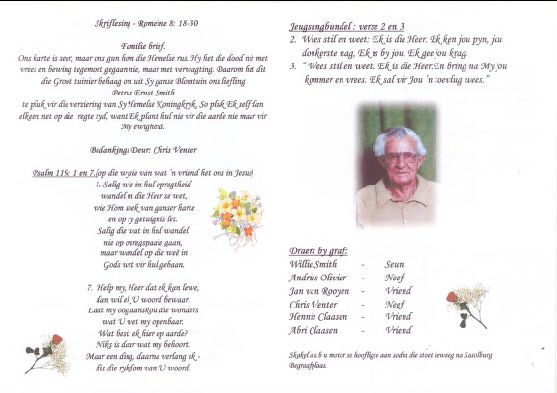 Skriflesing - Romeine 8: 18-30
Familie brief.
Ons harte is seer, maar ons gun hom die Hemelse rus. Hy het die dood nie met
vrees en bewing tegemoet gegaan nie, maar met verwagting. Daarom het dit
die Groot tuinier behaag om uit Sy ganse Blomtuin ons liefling
Petrus Ernst Smith
te pluk vir die versiering van Sy Hemelse Koningkryk. So pluk Ek self dan
elkeen net op die regte tyd, want Ek plant hul nie vir die aarde nie maar vir
My ewigheid.
Bedankings Deur: Chris Venter
Psalm 119: 1 en 7. (op die wysie van wat 'n vriend het ons in Jesus)
1. Salig die in hul opregtheid
wandel in die Heer se wet,
wie Hom soek van ganser harte
en op sy getuignis let.
Salig die wat in hul wandel
nie op onregspaaie gaan,
maar wandel op die weë in
Gods wet vir hul gebaan.
7. Help my, Heer dat ek kan lewe,
dan wil ek U woord bewaar.
Laat my oog aanskou die wonders
wat U wet my openbaar.
Wat besit ek hier op aarde?
Niks is daar wat my behoort.
Maar een ding, daarna verlang ek -
dis die rykdom van U woord.
Jeugsangbundel : verse 2 en 3
2. Wees stil en weet: Ek is die Heer. Ek ken jou pyn, jou
donkerste nag, Ek is by jou. Ek gee jou krag.
3. " Wees stil en weet: Ek is die Heer. En bring na My jou
kommer en vrees. Ek sal vir Jou 'n toevlug wees."
Draers by graf:
Willie Smith - Seun
Andries Olivier - Neef
Jan van Rooyen - Vriend
Chris Venter - Neef
Hennie Claasen - Vriend
Abri Claasen - Vriend
Skakel asb u motor se hoofligte aan sodra die stoet beweeg na Sasolburg
Begraafplaas.